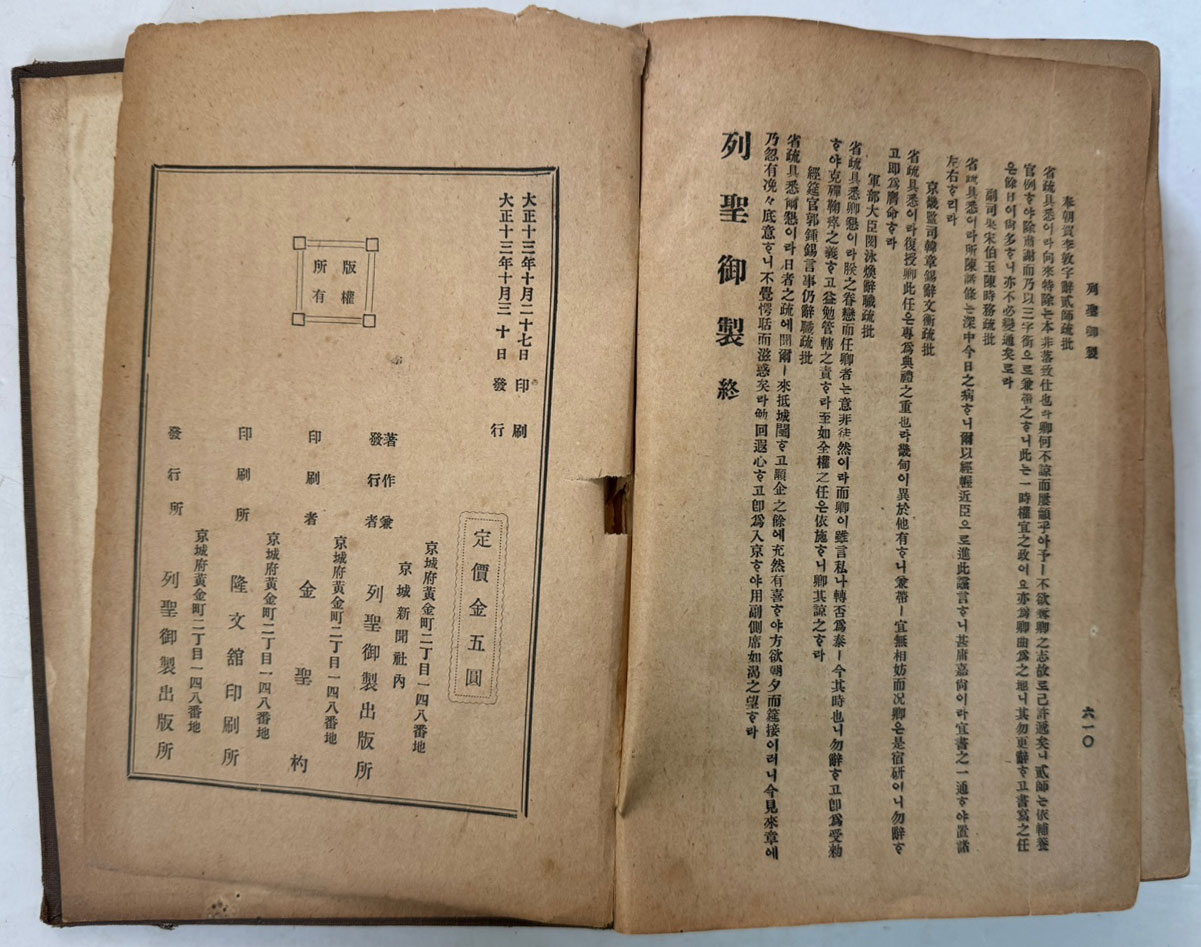 列聖御製
六一〇
奉朝賀李敦宇辭貳師疏批
省疏具悉이라向來特除는本非落致仕也라卿何不諒而屢顲乎아予ㅣ不欲奪卿之志故로己許遞矣니貳師는依補養
官例ᄒᆞ야除肅謝而乃以三字銜으로兼帶之ᄒᆞ니此는一時權宜之政이오亦爲卿曲爲之地니其勿更辭ᄒᆞ고書寫之任
은餘日이尙多ᄒᆞ니亦不必變通矣로라
副司果宋伯玉陳時務疏批
省疏具悉이라所陳諸條는深中今日之病ᄒᆞ니爾以經幄近臣으로進此讜言ᄒᆞ니甚庸嘉尙이라宜書之一通ᄒᆞ야置諸
左右ᄒᆞ리라
京畿監司韓章錫辭文衡疏批
省疏具悉이라復授卿此任은專爲典禮之重也라畿甸이異於他有ᄒᆞ니兼帶ㅣ宜無相妨而况卿은是宿硏이니勿辭ᄒᆞ
고即爲膺命ᄒᆞ라
軍部大臣閔泳煥辭職疏批
省疏具悉卿懇이라朕之眷戀而任卿者는意非徒然이라而卿이雖言私나轉否爲泰ㅣ今其時也니勿辭ᄒᆞ고即爲受勅
ᄒᆞ야克殫鞠瘁之義ᄒᆞ고益勉管轄之責ᄒᆞ라至如全權之任은依施ᄒᆞ니卿其諒之ᄒᆞ라
經筵官郭鍾錫言事仍辭職疏批
省疏具悉爾懇이라日者之疏에聞爾ㅣ來抵城闉ᄒᆞ고願企之餘에充然有喜ᄒᆞ야方欲朝夕而筵接이러니今見來章에
乃忽有浼々底意ᄒᆞ니不覺愕聒而滋惑矣라斯回遐心ᄒᆞ고即爲入京ᄒᆞ야用副側席如渴之望ᄒᆞ라
列聖御製 終
大正十三年十月二十七日 印刷
大正十三年十月三十日 發行
版權
所有
定價金五圓
京城府黃金町二丁目一四八番地
京城新聞社內
著作兼
發行者 列聖御製出版所
京城府黃金町二丁目一四八番地
印刷者 金聖杓
京城府黃金町二丁目一四八番地
印刷所 隆文舘印刷所
京城府黃金町二丁目一四八番地
發行所 列聖御製出版所